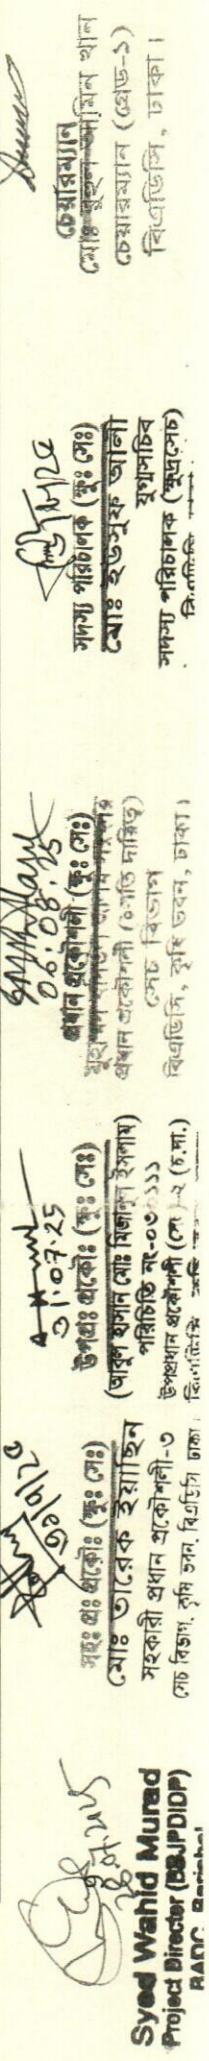 Syed Wahid Murad
Project Director (BBJPDIDP)
BADC,
সহঃ প্রঃ প্রকৌঃ (ক্ষুঃ সেঃ)
মোঃ তারেক ইয়াছিন
সহকারী প্রধান প্রকৌশলী-৩
সেচ বিভাগ, কৃষি ভবন, বিএডিসি ঢাকা।
৩১.০৭.25
উপপ্রঃ প্রকৌঃ (ক্ষুঃ সেঃ)
(আবুল হাসান মোঃ মিজানুল ইসলাম)
পরিচিতি নং-০৩০১১১
উপপ্রধান প্রকৌশলী (সে)-২ (চ.দা.)
06.08.25
প্রধান প্রকৌশলী (ক্ষুঃ সেঃ)
প্রধান প্রকৌশলী (চলতি দায়িত্ব)
সেচ বিভাগ
বিএডিসি, কৃষি ভবন, ঢাকা।
সদস্য পরিচালক (ক্ষুঃ সেঃ)
মোঃ ইউসুফ আলী
যুগ্মসচিব
সদস্য পরিচালক (ক্ষুদ্রসেচ)
চেয়ারম্যান
মোঃ রুহুল আমিন খান
চেয়ারম্যান (গ্রেড-১)
বিএডিসি, ঢাকা।